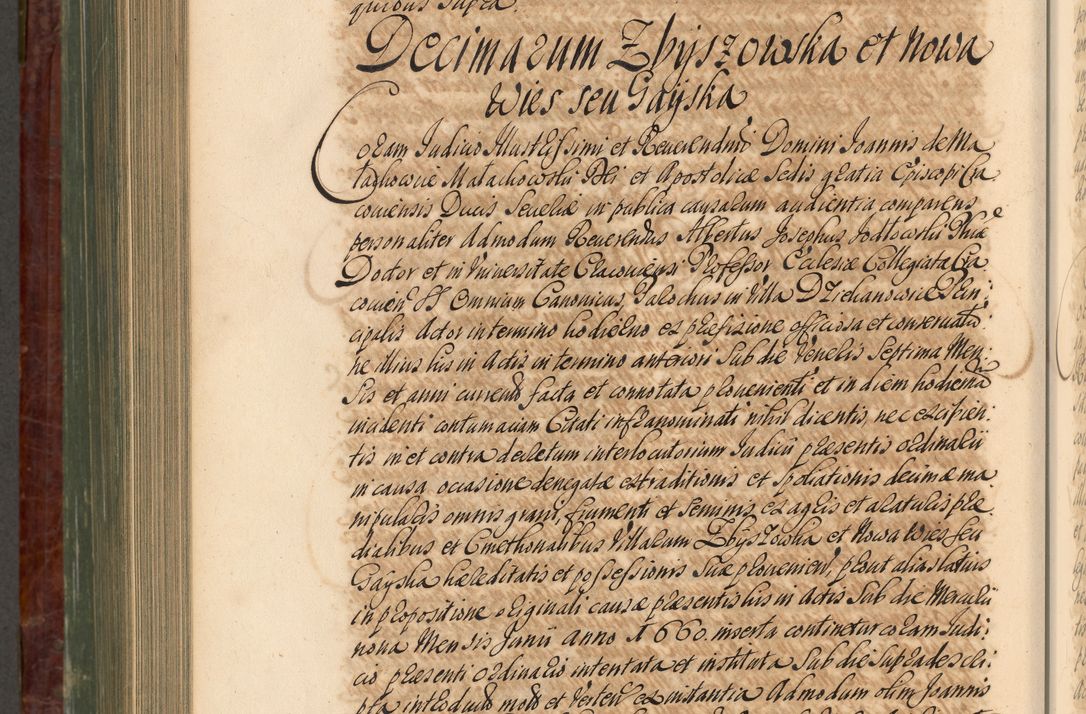 quibus supra.
Decimarum Zbyszowska et Nowa
Wies seu Gayska
Coram Judicio Illustrissimi et Reverendmi Domini Joannis de Ma
lachowice Malachowski Dei et Apostolicæ Sedis gratia Episcopi Cra
coviensis Ducis Severiæ in publica causarum audientia comparens
personaliter Admodum Reverendus Albertus Josephus Jodłowski Phiæ
Doctor et in Universitate Cracoviensi Professor Ecclesiæ Collegiatæ Cra
covien SS Omnium Canonicus, Parochus in Villa Dziekanowice Prin:
cipalis Actor in termino hodierno ex præfixione officiosa et conservatio:
ne illius huis in Actis in termino anteriori Sub die Veneris Septima Men:
sis et anni currend facta et connotata provenienti et in diem hodierna
incidenti contumaciam Citati infranominati nihil dicentis, nec excipien:
tis in et contra decretum interlocutorium Judicii præsentis ordinarii
in causa occasione denegatæ extraditionis et spoliationis decimæ ma
nipularis omnis grani, frumenti et seminis ex agris et araturis præ
dialibus et Cmethonalibus Villarum Zbyszowska et Nowa Wies seu
Gayska hæreditatis et possessionis suæ provenien, prout alias latius
in propositione originali causæ præsentis huis in Actis Sub die Mercurii
nona Mensis Junii Anno 1660. inserta continetur coram Judi:
cio præsenti ordinario intentata et instituta Sub die supradescri:
pta introducto modo et verten ex instantia Admodum olim Joannis